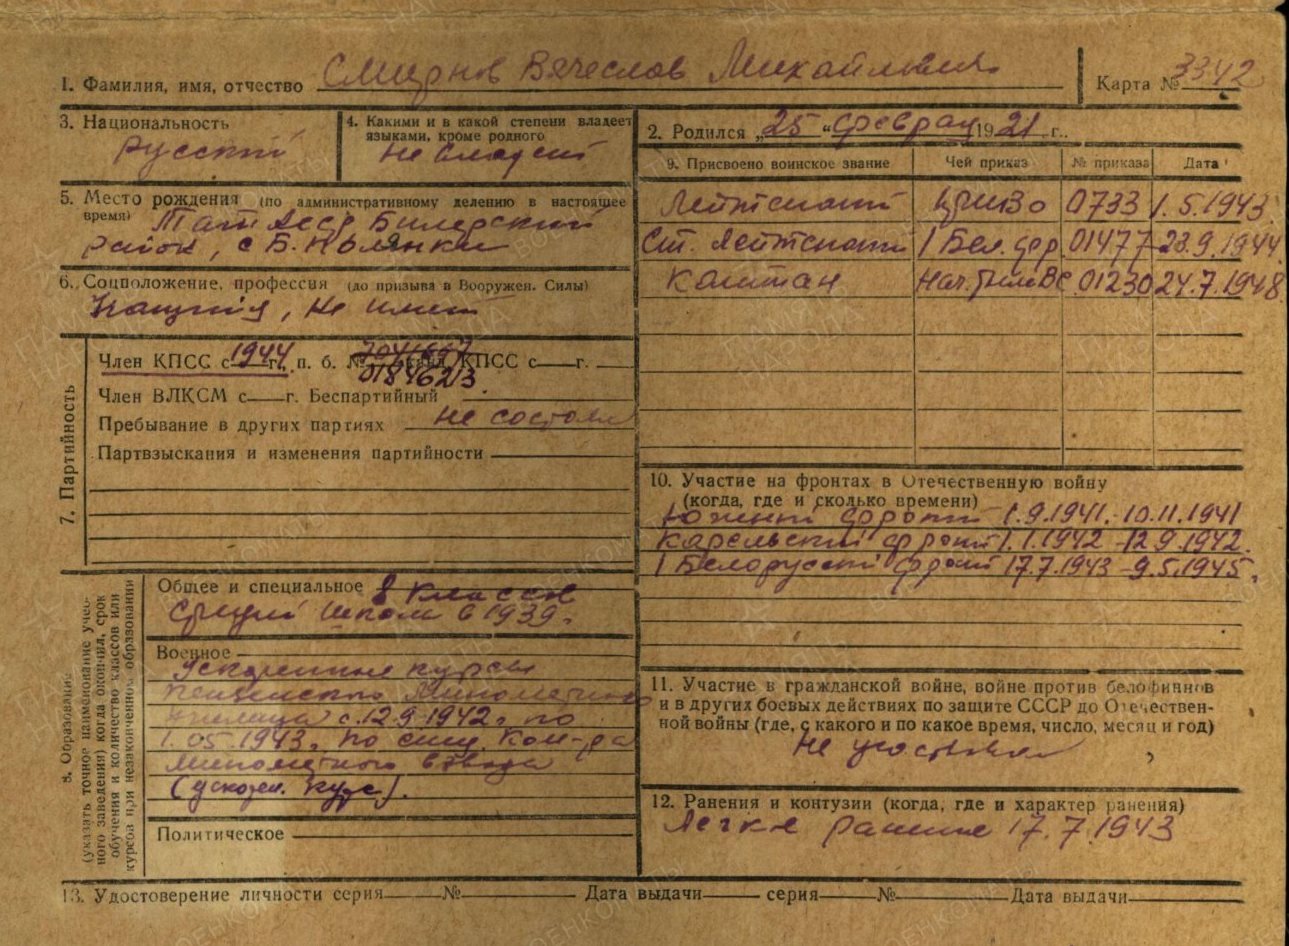 1. Фамилия, имя, отчество Смирнов Вячеслав Михайлович
Карта № 3342
3. Национальность
русский
4. Какими и в какой степени владеет
языками, кроме родного
не владеет
5. Место рождения (по административному делению в настоящее
время) Тат АССР Билярский
район, с Б. Полянки
6. Соцположение, профессия (до призыва в Вооружен. Силы)
учащийся, не имеет
7. Партийность
Член КПСС с 1944 г., п. б. № КПСС с г.
01846213
Член ВЛКСМ с г. Беспартийный
Пребывание в других партиях не состоял
Партвзыскания и изменения партийности
8. Образование
(указать точное наименование учеб-
ного заведения) когда окончил, срок
обучения и количество классов или
курсов при незаконченном образовании
Общее и специальное 8 классов
средней школы в 1939г.
Военное
Ускоренные курсы
Пензенского Минометного
училища с 12.9.1942г. по
1.05.1943г. по спец. Ком-ра
минометного взвода
(ускорен. курс).
Политическое
2. Родился „25“ февраля 1921 г.
9. Присвоено воинское звание Чей приказ № приказа Дата
Лейтенант 0733 1.5.1943.
Ст. лейтенант 1 Бел. фр. 01477 28.9.1944.
Капитан Нач. тыла ВС 01230 24.7.1948
10. Участие на фронтах в Отечественную войну
(когда, где и сколько времени)
Южный фронт 1.9.1941.-10.11.1941
Карельский фронт 1.1.1942-12.9.1942.
1 Белорусский фронт 17.7.1943-9.5.1945.
11. Участие в гражданской войне, войне против белофиннов
и в других боевых действиях по защите СССР до Отечествен-
ной войны (где, с какого и по какое время, число, месяц и год)
Не участвовал
12. Ранения и контузии (когда, где и характер ранения)
Легкое ранение 17.7.1943
13. Удостоверение личности серия № Дата выдачи серия № Дата выдачи